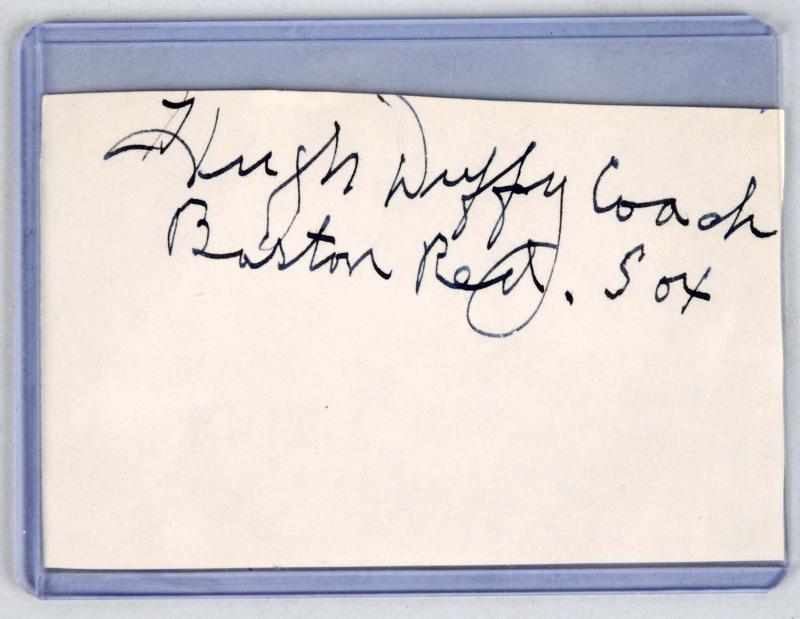 Hugh Duffy Coach
Boston Red. Sox